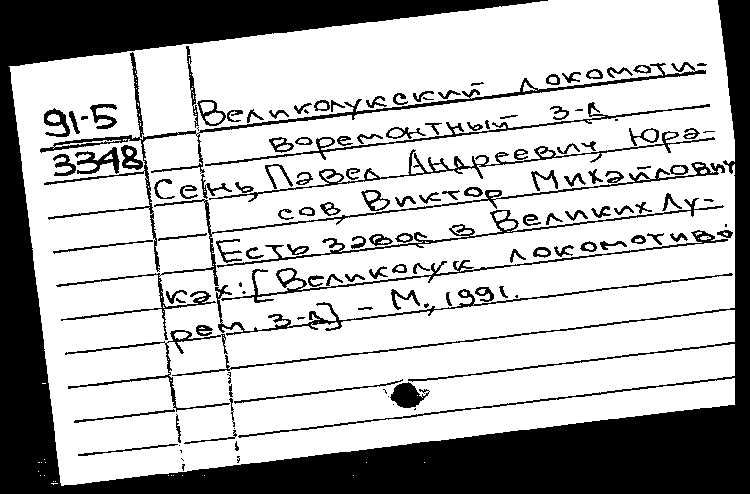 91-5
3348
Великолукский локомоти-
воремонтный з-д
Сень, Павел Андреевич, Юра-
сов, Виктор Михайлович
Есть завод в Великих Лу-
ках: [Великолук. локомотиво-
рем. з-д] - М., 1991.